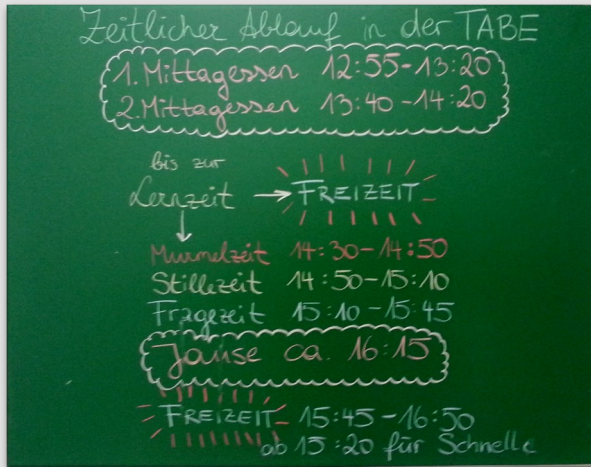 Zeitlicher Ablauf in der TABE
1. Mittagessen 12:55-13:20
2. Mittagessen 13:40-14:20
bis zur
Lernzeit → FREIZEIT
Murmelzeit 14:30-14:50
Stillezeit 14:50-15:10
Fragezeit 15:10-15:45
Jause ca. 16:15
FREIZEIT 15:45-16:50
ab 15:20 für Schnelle